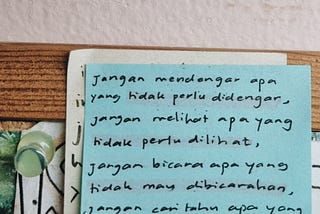 Jangan mendengar apa
yang tidak perlu didengar,
jangan melihat apa yang
tidak perlu dilihat,
jangan bicara apa yang
tidak mau dibicarahan,
jangan cari tahu apa yang